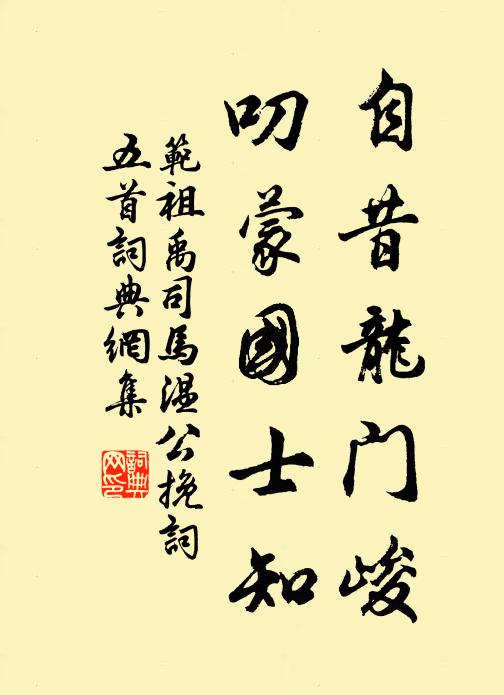 自昔龍门峻
叨蒙國士知
範祖禹司馬溫公挽詞
五首詞典網集
詞典
网印